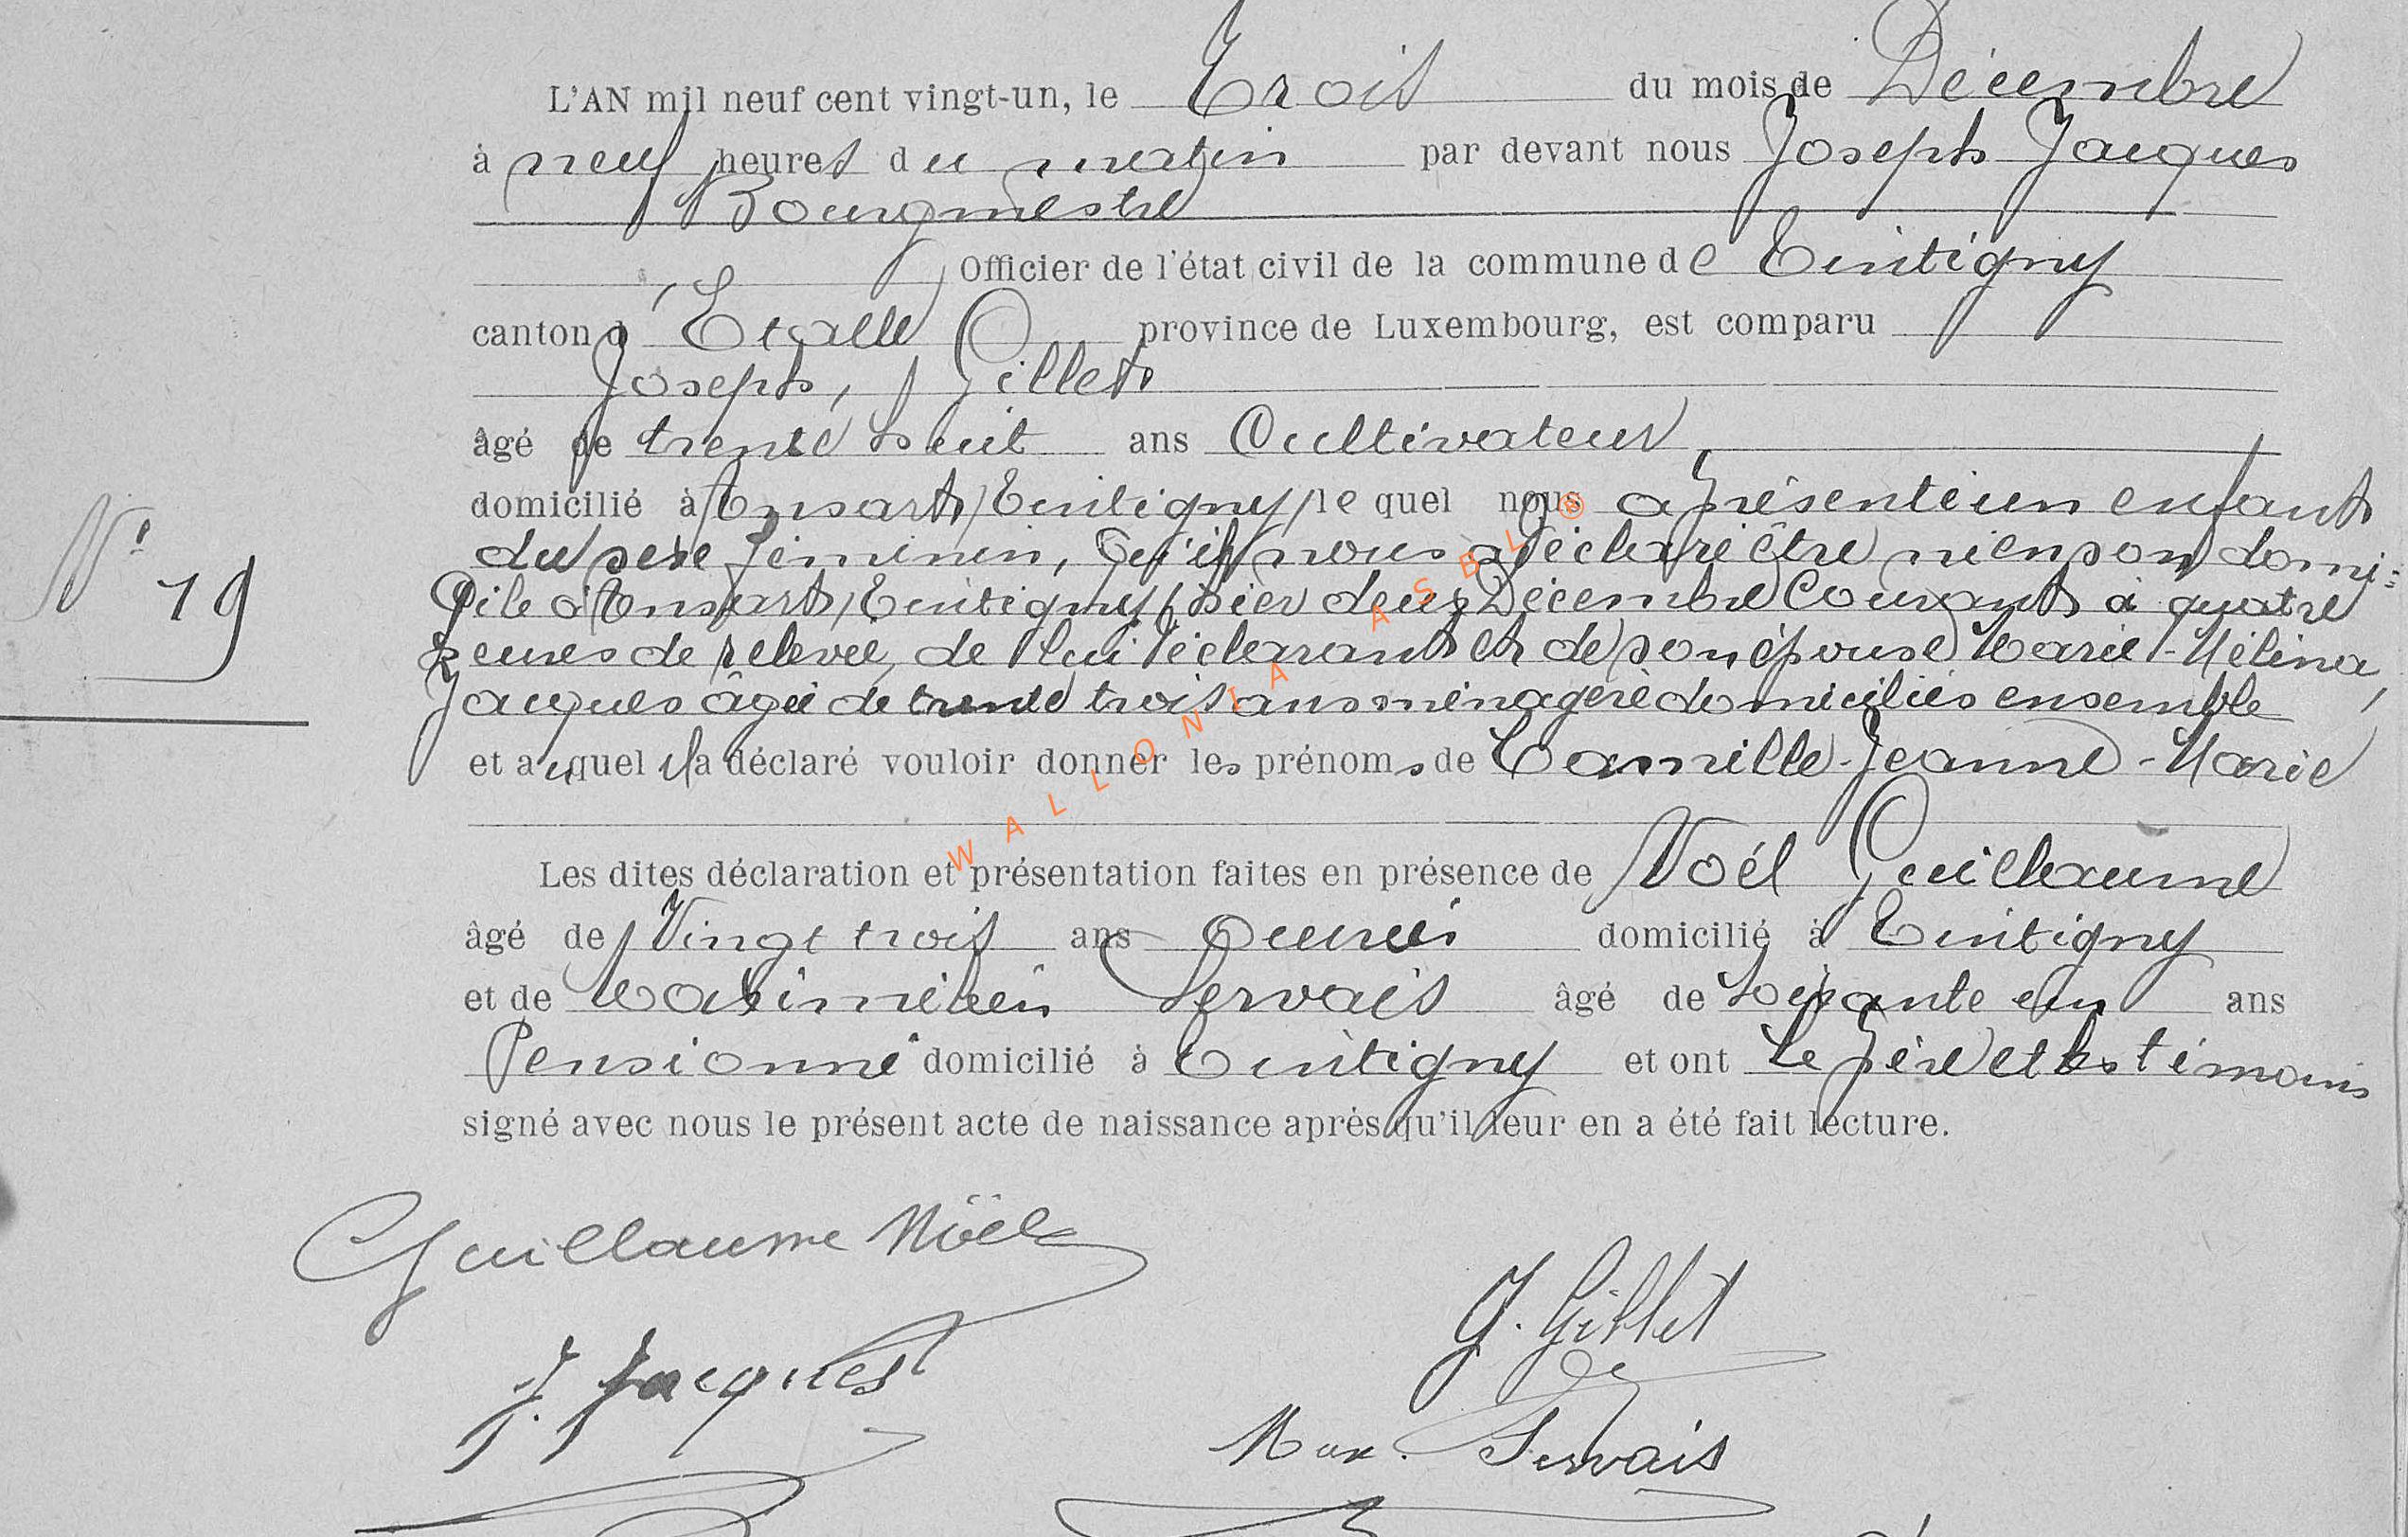 L'AN mil neuf cent vingt-un, le Trois du mois de Décembre
à neuf heures du matin par devant nous Joseph Jacques
Bourgmestre
Officier de l'état civil de la commune de Tintigny
canton d'Etalle province de Luxembourg, est comparu
Joseph, Gillet
âgé de trente huit ans Cultivateur
domicilié à Ansart, Tintigny, le quel nous a présenté un enfant
du sexe féminin, qu'il nous a déclaré être né en son domi-
N° 19
cile à Ansart, Tintigny, hier deux Décembre Courant à quatre
heures de relevée, de lui déclarant et de son épouse Marie-Mélina,
Jacques âgée de trente trois ans ménagère domiciliés ensemble
et auquel il a déclaré vouloir donner les prénoms de Camille-Jeanne-Marie
Les dites déclaration et présentation faites en présence de Noél Guillaume
âgé de Vingt trois ans domicilié à Tintigny
et de Maximilien Servais âgé de Soixante un ans
Pensionné domicilié à Tintigny et ont le père et les témoins
signé avec nous le présent acte de naissance après qu'il leur en a été fait lecture.
WALLONIA ASBL ®
Guillaume Noël
J. Gillet
J. Jacques
Max. Servais